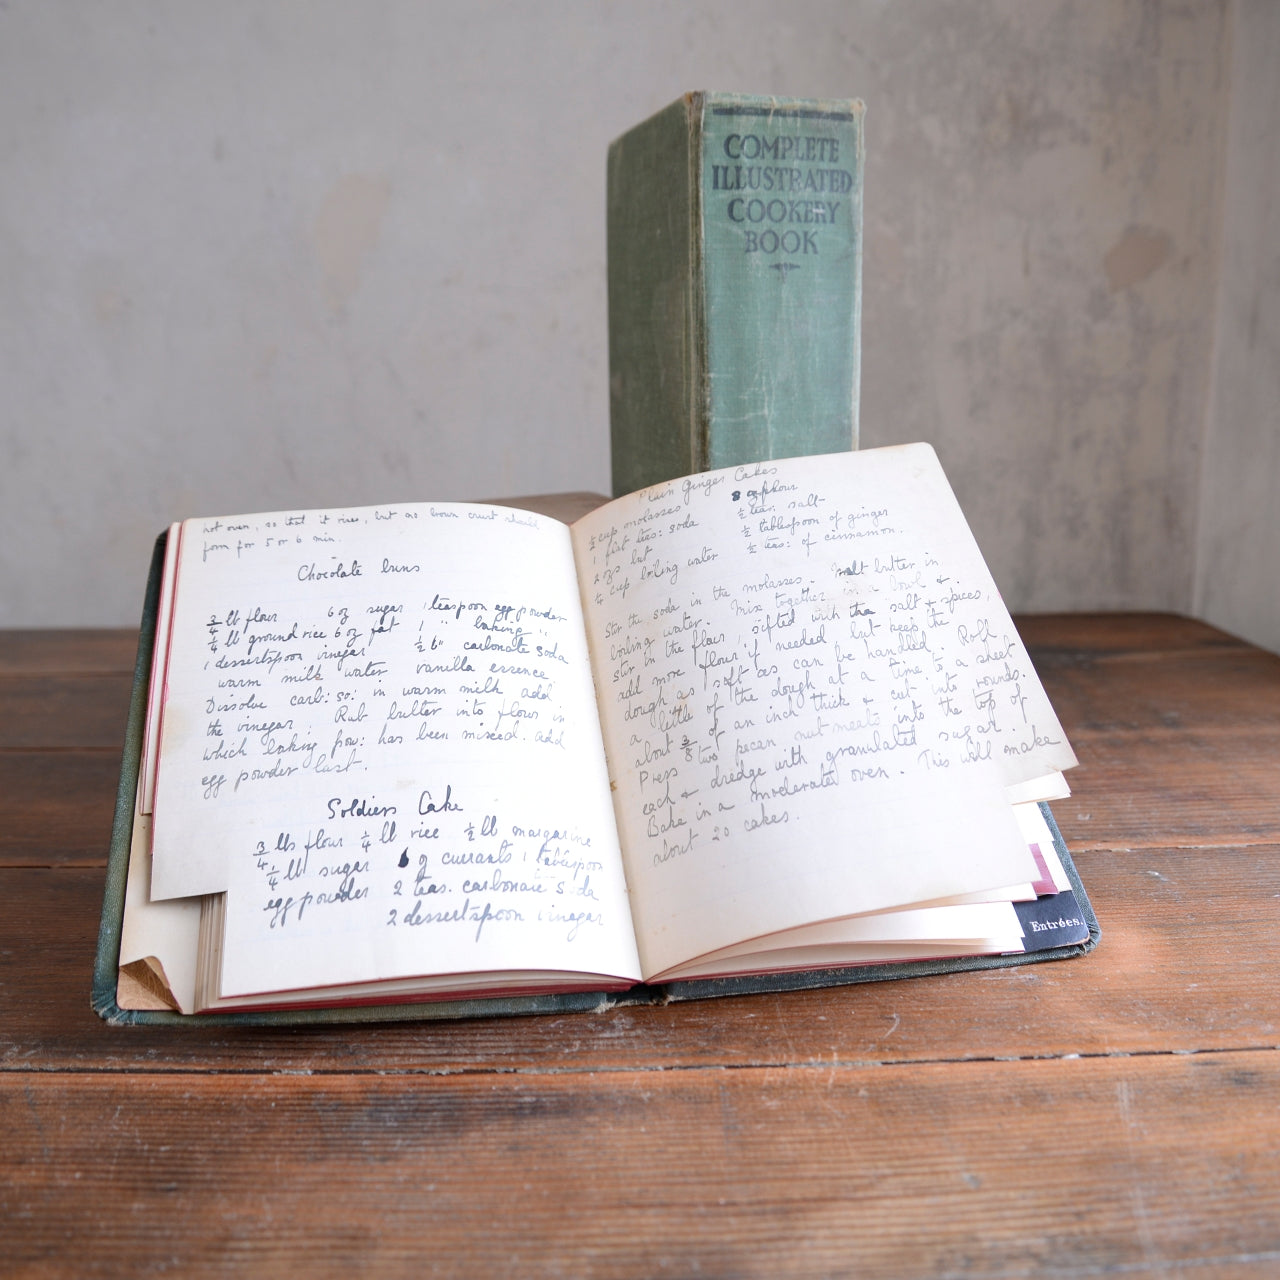 COMPLETE
ILLUSTRATED
COOKERY
BOOK
hot oven, so that it rises, but no brown crust should
form for 5 or 6 min.
Chocolate buns
3/4 lb flour 6 oz sugar 1 teaspoon egg powder
1/4 lb ground rice 6 oz fat 1 " baking "
1 dessertspoon vinegar 1/2 " carbonate soda
warm milk water vanilla essence
Dissolve carb: so: in warm milk add
the vinegar. Rub butter into flour in
which baking pow: has been mixed. Add
egg powder last.
Soldiers Cake
3/4 lbs flour 1/4 lb rice 1/2 lb margarine
1/4 lb sugar 6 oz currants 1 tablespoon
egg powder 2 teas. carbonate soda
2 dessertspoon vinegar
Plain Ginger Cakes
1/2 cup molasses. 8 oz flour
1 flat teas: soda 1/2 teas: salt
2 ozs but 1/2 tablespoon of ginger
1/4 cup boiling water 1/2 teas: of cinnamon.
Stir the soda in the molasses. Melt butter in
boiling water. Mix together in a bowl &
stir in the flour, sifted with the salt & spices,
add more flour if needed, but keep the
dough as soft as can be handled. Roll
a little of the dough at a time to a sheet
about 3/8 of an inch thick & cut into rounds.
Press two pecan nut meats into the top of
each & dredge with granulated sugar.
Bake in a moderate oven. This will make
about 20 cakes.
Entrées.